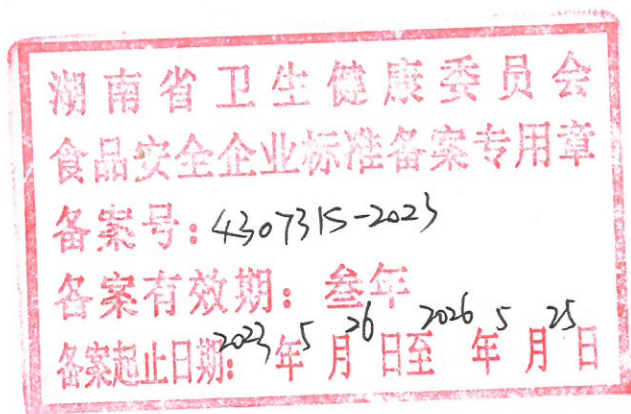 湖南省卫生健康委员会
食品安全企业标准备案专用章
备案号：4307315-2023
备案有效期：叁年
备案起止日期：2023年5月26日至2026年5月25日